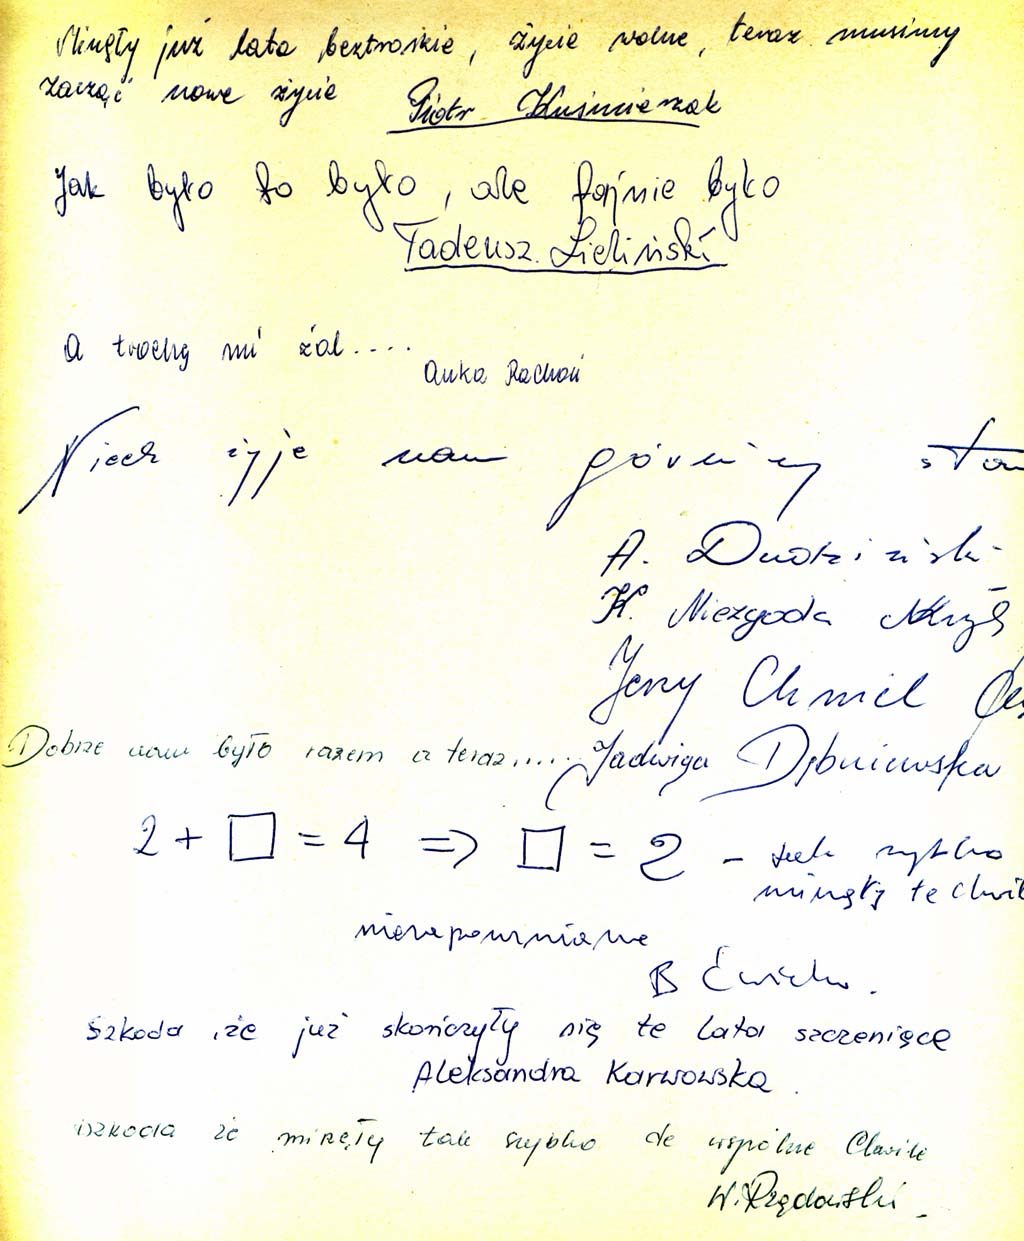 Minęły już lata beztroskie, życie wolne, teraz musimy
zacząć nowe życie Piotr Kuśmierzak
Jak było to było, ale fajnie było
Tadeusz Zieliński
A trochę mi żal....
Anka Rachoń
Niech żyje nam górniczy stan
A. Dudziński
K. Niezgoda
Jerzy Chmiel
Dobrze nam było razem a teraz..... Jadwiga Dębniewska
2 + □ = 4 => □ = 2 - tak szybko
minęły te chwile
niezapomniane
B
Szkoda, że już skończyły się te lata szczenięce
Aleksandra Karwowska.
szkoda że minęły tak szybko te wspólne Chwile
W. Rządowski